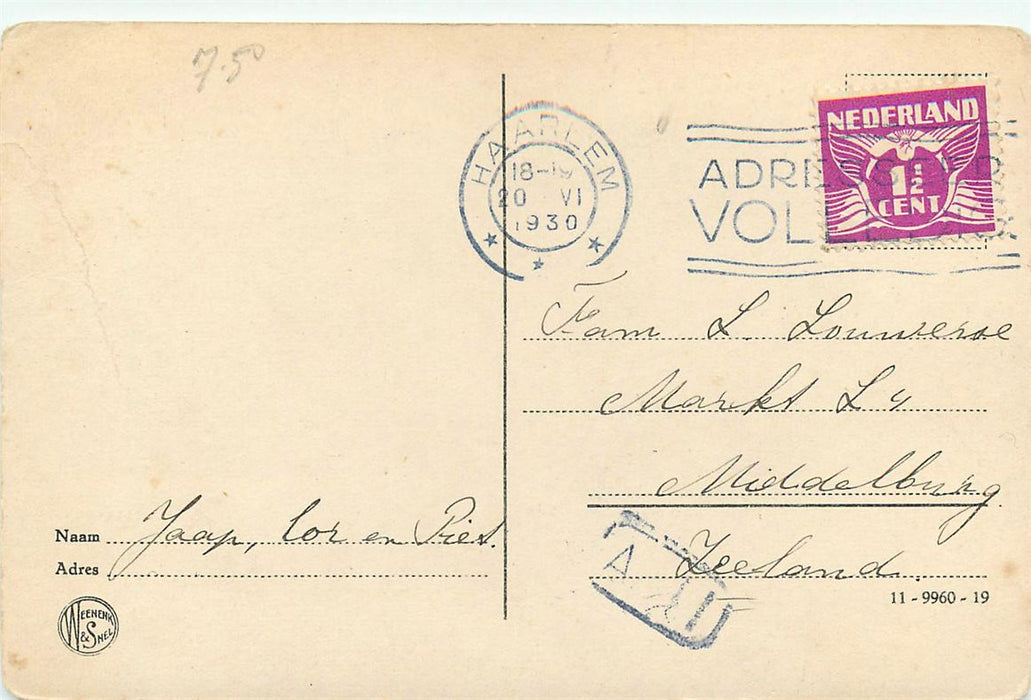 7.50
HAARLEM
18-19
20 VI
1930
ADRESSEER
VOL
NEDERLAND
1½
CENT
Fam L. Louwerse
Markt L 4
Middelburg
Zeeland
Naam Jaap, Cor en Piet.
Adres
11 - 9960 - 19
WEENENK
& SNEL
A III